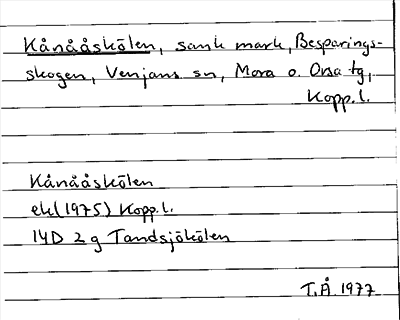 Kånååskölen, sank mark, Besparings-
skogen, Venjans sn, Mora o. Orsa tg,
Kopp. l.
Kånååskölen
ek (1975) Kopp. l.
14D 2g Tandsjökölen
T.Å. 1977